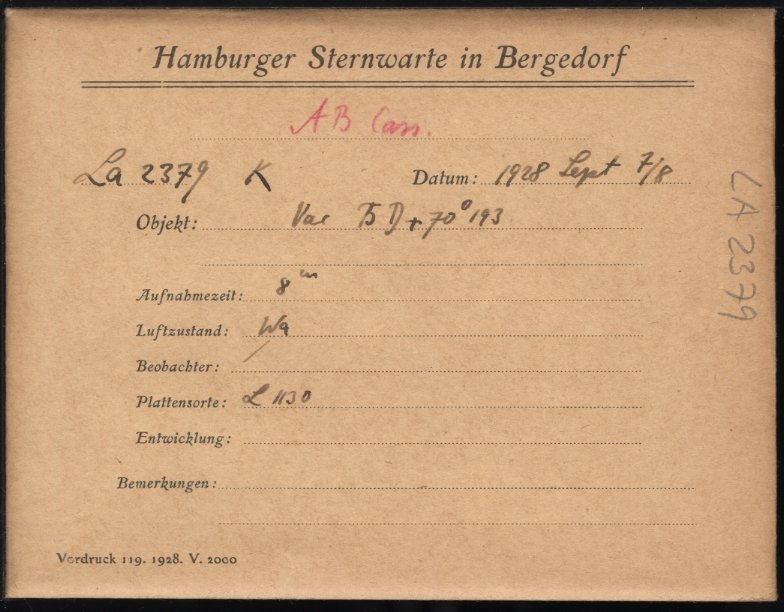 Hamburger Sternwarte in Bergedorf
AB Cass.
La 2379 K Datum: 1928 Sept 7/8
Objekt: Var BD +70°193
Aufnahmezeit: 8m
Luftzustand:
Wa
Beobachter:
Plattensorte: L 1130
Entwicklung:
Bemerkungen:
Vordruck 119. 1928. V. 2000
LA 2379